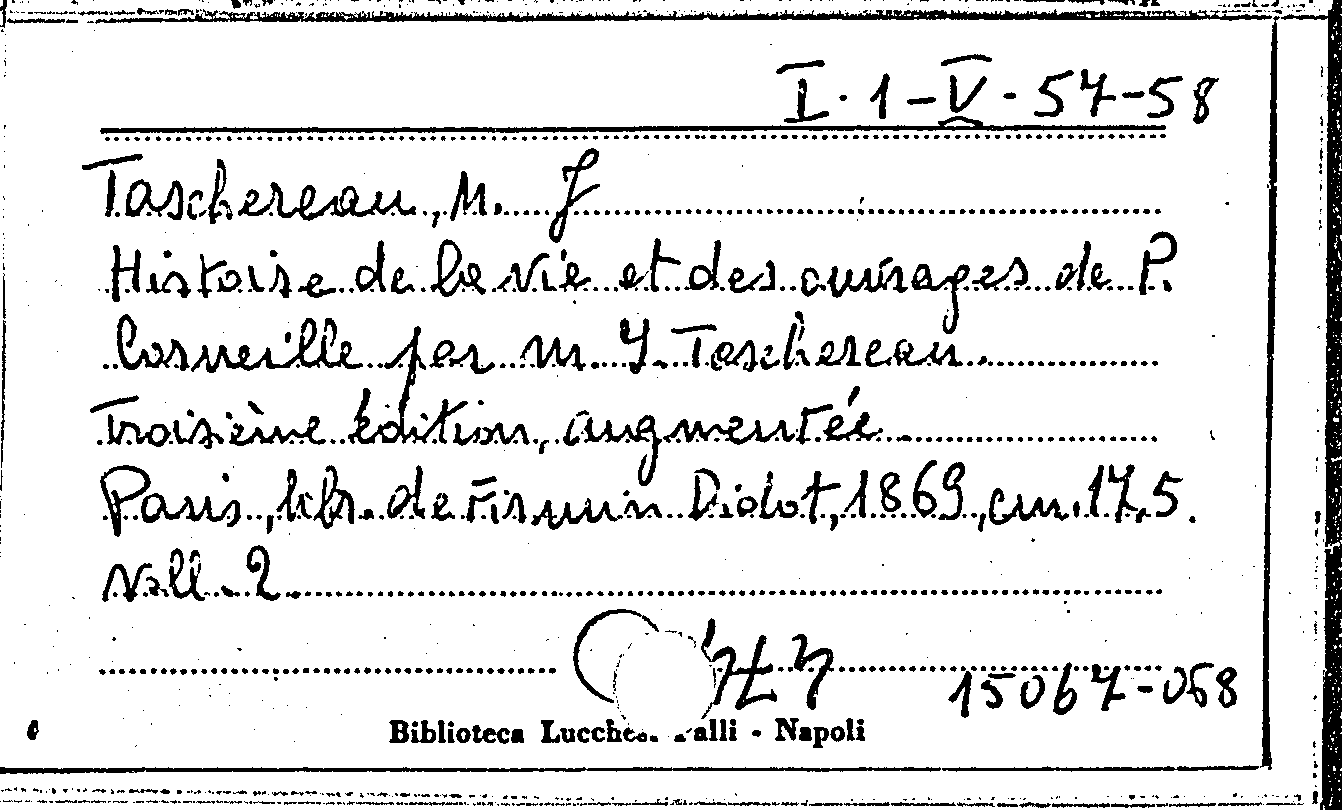 I. 1 - V. 57-58
Taschereau, M. J
Histoire de la vie et des ouvrages de P.
Corneille par M. J. Taschereau.
Troisième édition, augmentée
Paris, libr. de Firmin Didot, 1869, cm. 17,5.
voll. 2.
15067-068
Biblioteca Lucchesi Palli - Napoli